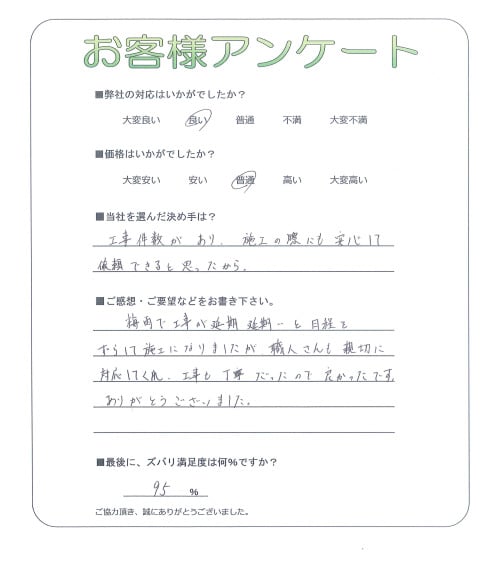 お客様アンケート
■弊社の対応はいかがでしたか？
大変良い 良い 普通 不満 大変不満
■価格はいかがでしたか？
大変安い 安い 普通 高い 大変高い
■当社を選んだ決め手は？
工事件数があり、施工の際にも安心して
依頼できると思ったから。
■ご感想・ご要望などをお書き下さい。
梅雨で工事が延期延期…と日程を
ずらして施工になりましたが職人さんも親切に
対応してくれ、工事も丁寧だったので良かったです。
ありがとうございました。
■最後に、ズバリ満足度は何%ですか？
95 %
ご協力頂き、誠にありがとうございました。